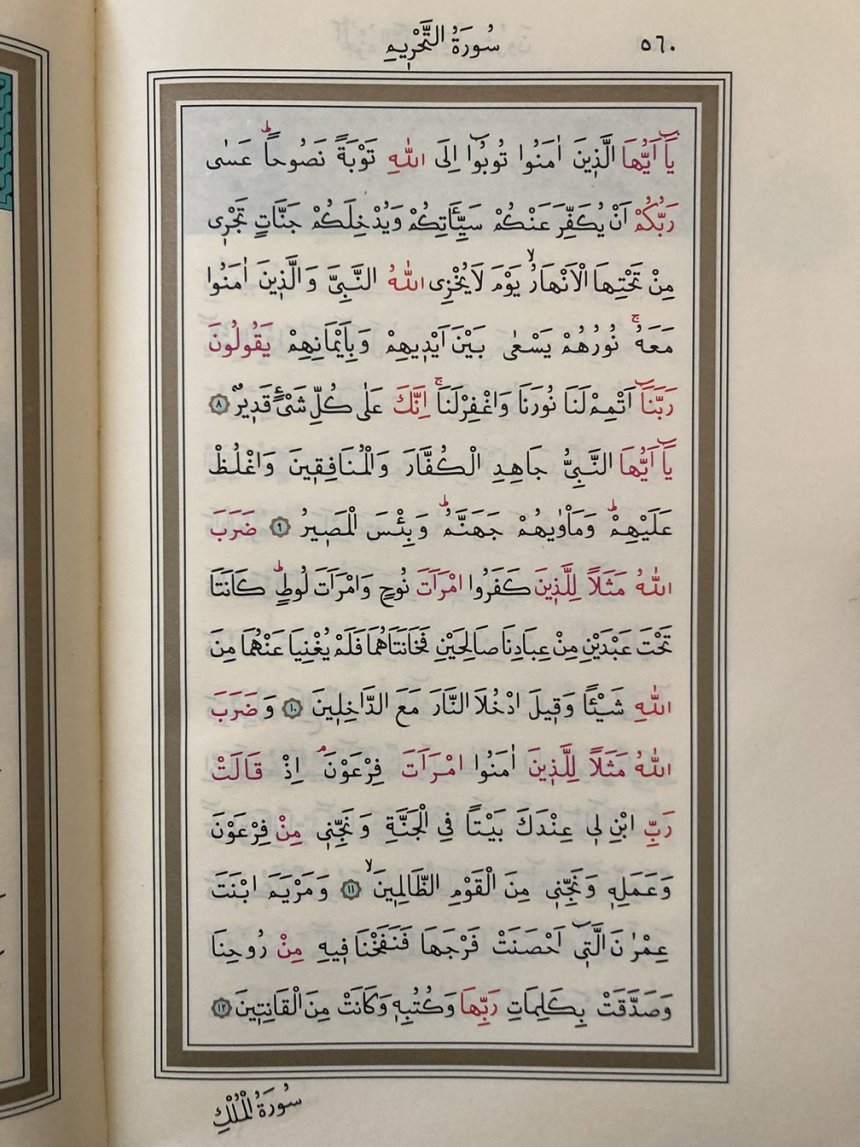 سُورَةُ التَّحْرِيمِ ٥٦٠
يَٓا اَيُّهَا الَّذٖينَ اٰمَنُوا تُوبُٓوا اِلَى اللّٰهِ تَوْبَةً نَصُوحاًؕ عَسٰى
رَبُّكُمْ اَنْ يُكَفِّرَ عَنْكُمْ سَيِّـَٔاتِكُمْ وَيُدْخِلَكُمْ جَنَّاتٍ تَجْرٖى
مِنْ تَحْتِهَا الْاَنْهَارُۙ يَوْمَ لَا يُخْزِى اللّٰهُ النَّبِىَّ وَالَّذٖينَ اٰمَنُوا
مَعَهُۚ نُورُهُمْ يَسْعٰى بَيْنَ اَيْدٖيهِمْ وَبِاَيْمَانِهِمْ يَقُولُونَ
رَبَّنَٓا اَتْمِمْ لَنَا نُورَنَا وَاغْفِرْ لَنَاۚ اِنَّكَ عَلٰى كُلِّ شَىْءٍ قَدٖيرٌ ٨
يَٓا اَيُّهَا النَّبِىُّ جَاهِدِ الْكُفَّارَ وَالْمُنَافِقٖينَ وَاغْلُظْ
عَلَيْهِمْؕ وَمَأْوٰيهُمْ جَهَنَّمُؕ وَبِئْسَ الْمَصٖيرُ ٩ ضَرَبَ
اللّٰهُ مَثَلاً لِلَّذٖينَ كَفَرُوا امْرَاَتَ نُوحٍ وَامْرَاَتَ لُوطٍؕ كَانَتَا
تَحْتَ عَبْدَيْنِ مِنْ عِبَادِنَا صَالِحَيْنِ فَخَانَتَاهُمَا فَلَمْ يُغْنِيَا عَنْهُمَا مِنَ
اللّٰهِ شَيْـٔاً وَقٖيلَ ادْخُلَا النَّارَ مَعَ الدَّاخِلٖينَ ١٠ وَضَرَبَ
اللّٰهُ مَثَلاً لِلَّذٖينَ اٰمَنُوا امْرَاَتَ فِرْعَوْنَۘ اِذْ قَالَتْ
رَبِّ ابْنِ لٖى عِنْدَكَ بَيْتاً فِى الْجَنَّةِ وَنَجِّنٖى مِنْ فِرْعَوْنَ
وَعَمَلِهٖ وَنَجِّنٖى مِنَ الْقَوْمِ الظَّالِمٖينَۙ ١١ وَمَرْيَمَ ابْنَتَ
عِمْرٰنَ الَّتٖٓى اَحْصَنَتْ فَرْجَهَا فَنَفَخْنَا فٖيهِ مِنْ رُوحِنَا
وَصَدَّقَتْ بِكَلِمَاتِ رَبِّهَا وَكُتُبِهٖ وَكَانَتْ مِنَ الْقَانِتٖينَ ١٢
سُورَةُ الْمُلْكِ